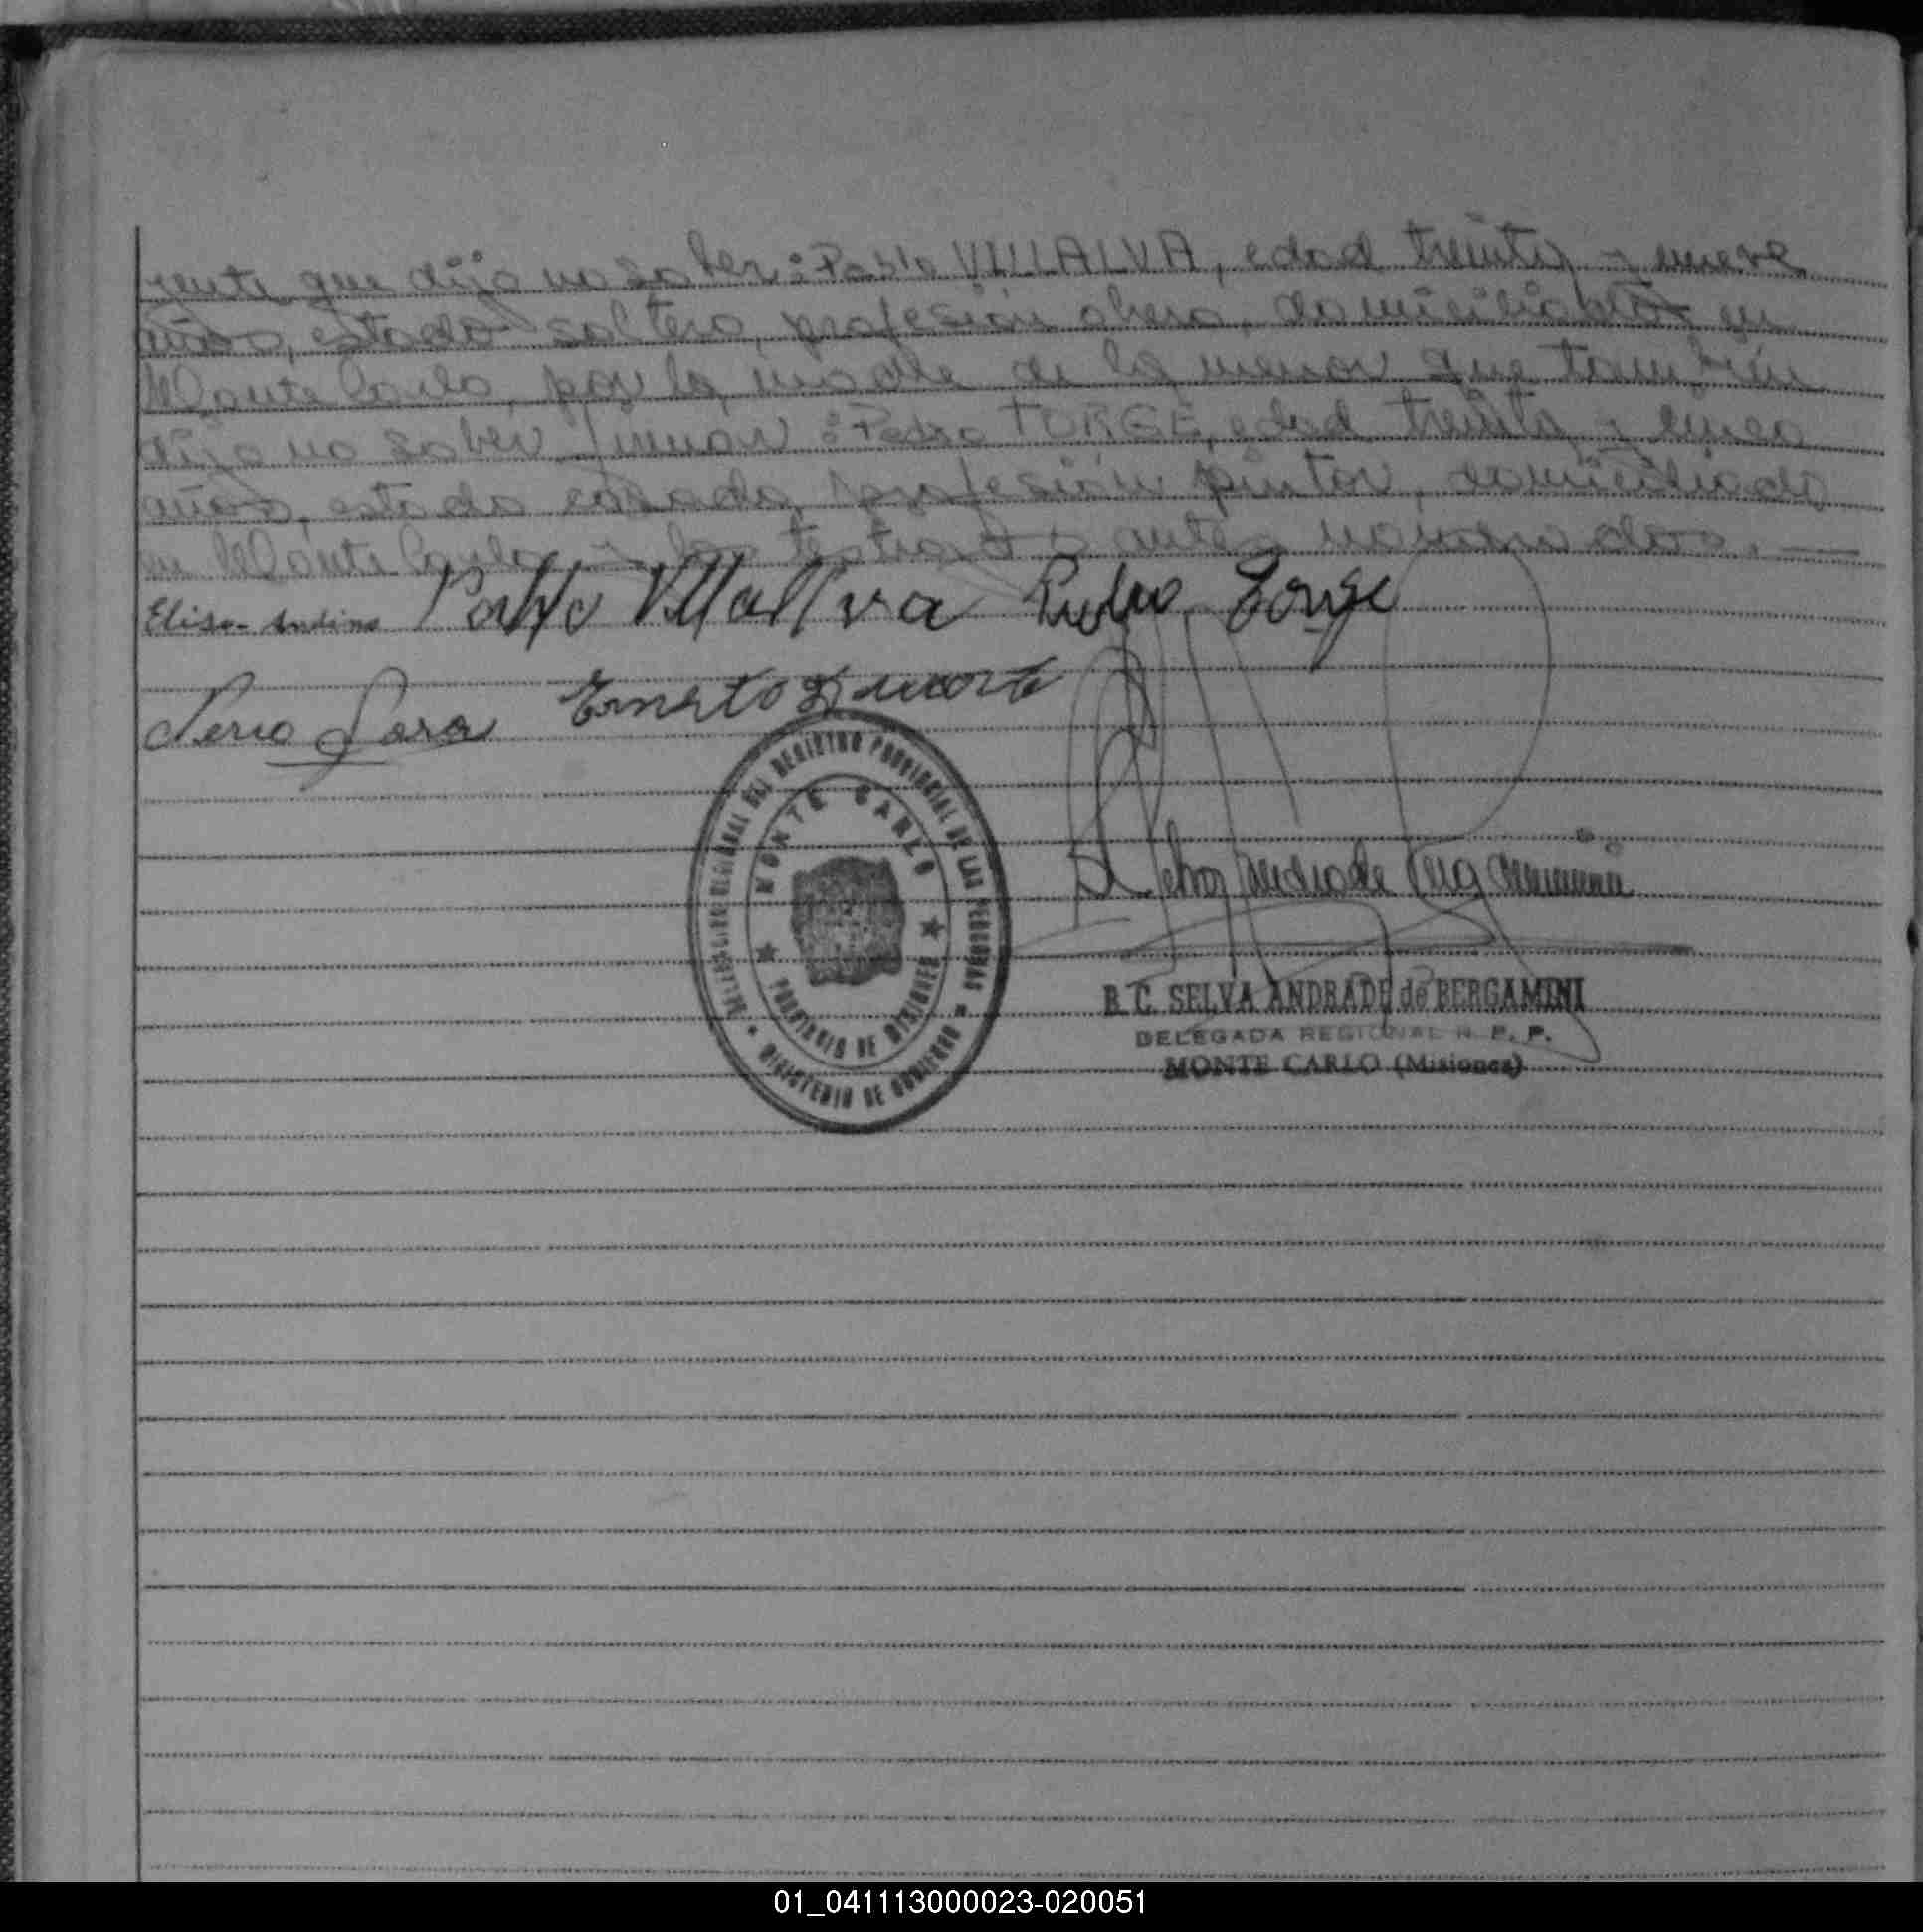 yente que dijo no saber: Pablo VILLALVA, edad treinta y nueve
años, estado soltero, profesión obrero, domiciliado en
Monte Carlo, por la madre de la menor que también
dijo no saber firmar: Pedro JORGE, edad treinta y cinco
años, estado casado, profesión pintor, domiciliado
en Monte Carlo y los testigos antes nombrados.
Elisa Andino Pablo Villalva Pedro Jorge
Ernesto Duarte
DELEGACION REGIONAL DEL REGISTRO PROVINCIAL DE LAS PERSONAS
MONTE CARLO
PROVINCIA DE MISIONES
MINISTERIO DE GOBIERNO
Selva Andrade Bergamini
B. C. SELVA ANDRADE de BERGAMINI
DELEGADA REGIONAL R. P. P.
MONTE CARLO (Misiones)
01_041113000023-020051